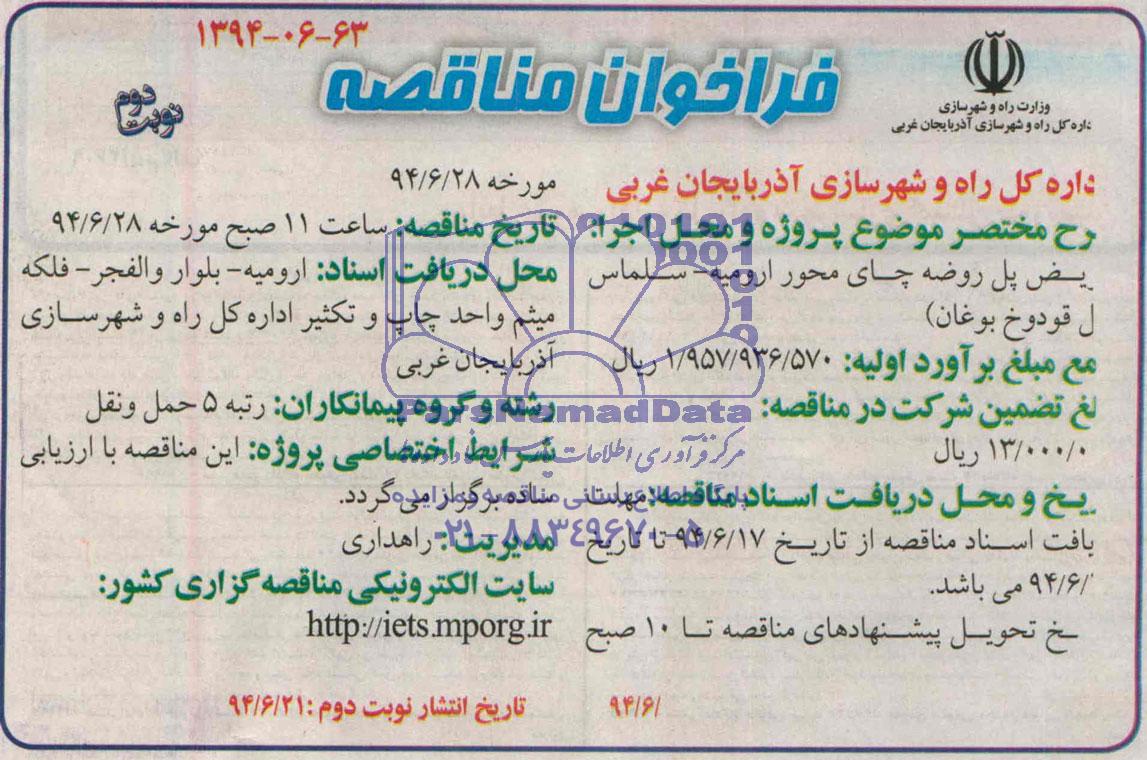 ۱۳۹۴-۰۶-۶۳
فراخوان مناقصه
نوبت دوم
وزارت راه و شهرسازی
داره کل راه و شهرسازی آذربایجان غربی
داره کل راه و شهرسازی آذربایجان غربی
رح مختصر موضوع پروژه و محل اجرا:
یض پل روضه چای محور ارومیه- سلماس
ل قودوخ بوغان)
مع مبلغ برآورد اولیه: ۱/۹۵۷/۹۳۶/۵۷۰ ریال
لغ تضمین شرکت در مناقصه:
۱۳/۰۰۰/۰ ریال
یخ و محل دریافت اسناد مناقصه: مهلت
یافت اسناد مناقصه از تاریخ ۹۴/۶/۱۷ تا تاریخ
۹۴/۶/ می باشد.
خ تحویل پیشنهادهای مناقصه تا ۱۰ صبح
مورخه ۹۴/۶/۲۸
تاریخ مناقصه: ساعت ۱۱ صبح مورخه ۹۴/۶/۲۸
محل دریافت اسناد: ارومیه- بلوار والفجر- فلکه
میثم واحد چاپ و تکثیر اداره کل راه و شهرسازی
آذربایجان غربی
رشته و گروه پیمانکاران: رتبه ۵ حمل ونقل
شرایط اختصاصی پروژه: این مناقصه با ارزیابی
ساده برگزار می گردد.
مدیریت: راهداری
سایت الکترونیکی مناقصه گزاری کشور:
http://iets.mporg.ir
۹۴/۶/
تاریخ انتشار نوبت دوم :۹۴/۶/۲۱
ParsNamadData
مرکز فرآوری اطلاعات پارس نماد داده ها
پایگاه اطلاع رسانی مناقصه و مزایده
۰۲۱-۸۸۳۴۹۶۷۰-۵